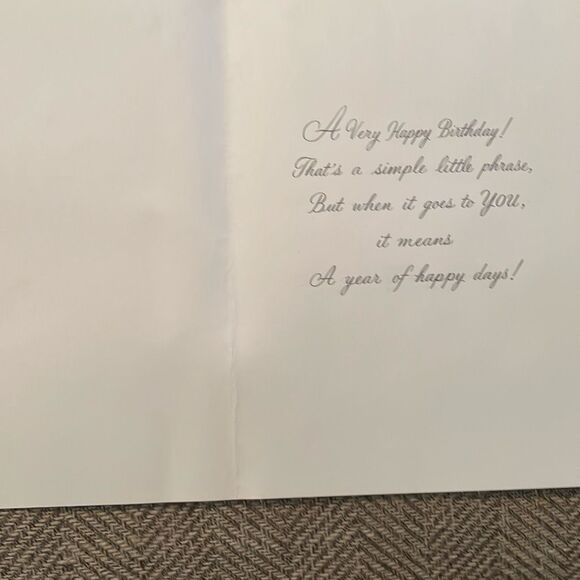 A Very Happy Birthday!
That's a simple little phrase,
But when it goes to YOU,
it means
A year of happy days!